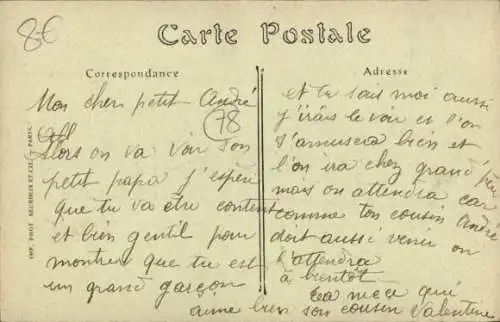 8€
Carte Postale
Correspondance
Adresse
IMP. PHOT. NEURDEIN ET CIE. - PARIS.
78
Mon cher petit André
Alors on va voir son
petit papa j'espère
que tu va être content
et bien gentil pour
montrer que tu est
un grand garçon
et tu sais moi aussi
j'irais le voir et l'on
s'amusera bien et
l'on ira chez grand père
mais on attendra car
comme ton cousin André
doit aussi venir on
l'attendra
à bientôt
qui
aime bien son cousin Valentine